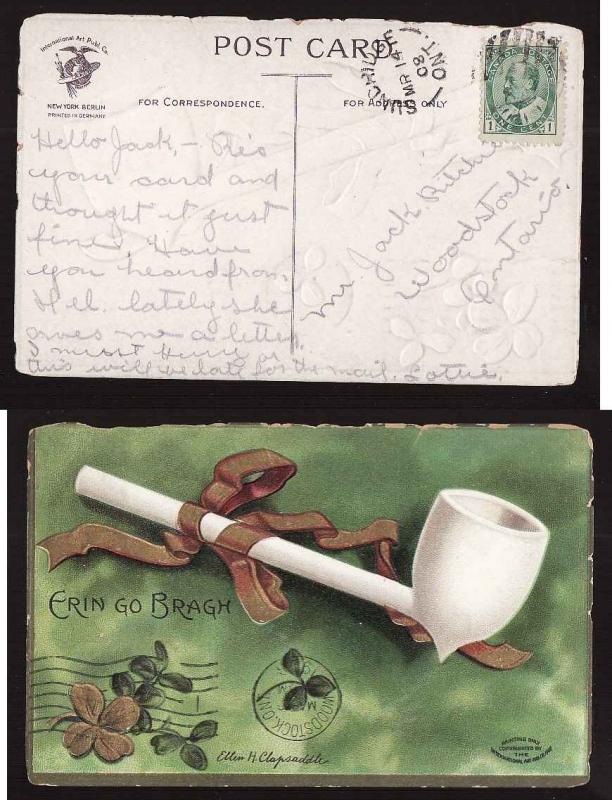 International Art Publ. Co.
NEW YORK BERLIN
PRINTED IN GERMANY
POST CARD
FOR CORRESPONDENCE.
FOR ADDRESS ONLY
MR 14
08
ONT.
CANADA POSTAGE
1 ONE CENT 1
Hello Jack, - Re's
your card and
thought it just
fine. Have
you heard from
Hel. lately she
owes me a letter.
I must hurry or
this will be late for the mail. Lottie.
Mr. Jack Ritchie
Woodstock
Ontario
ERIN GO BRAGH
WOODSTOCK, ONT
Ellen H. Clapsaddle
PAINTING ONLY
COPYRIGHTED BY
THE
INTERNATIONAL ART PUBL. CO.